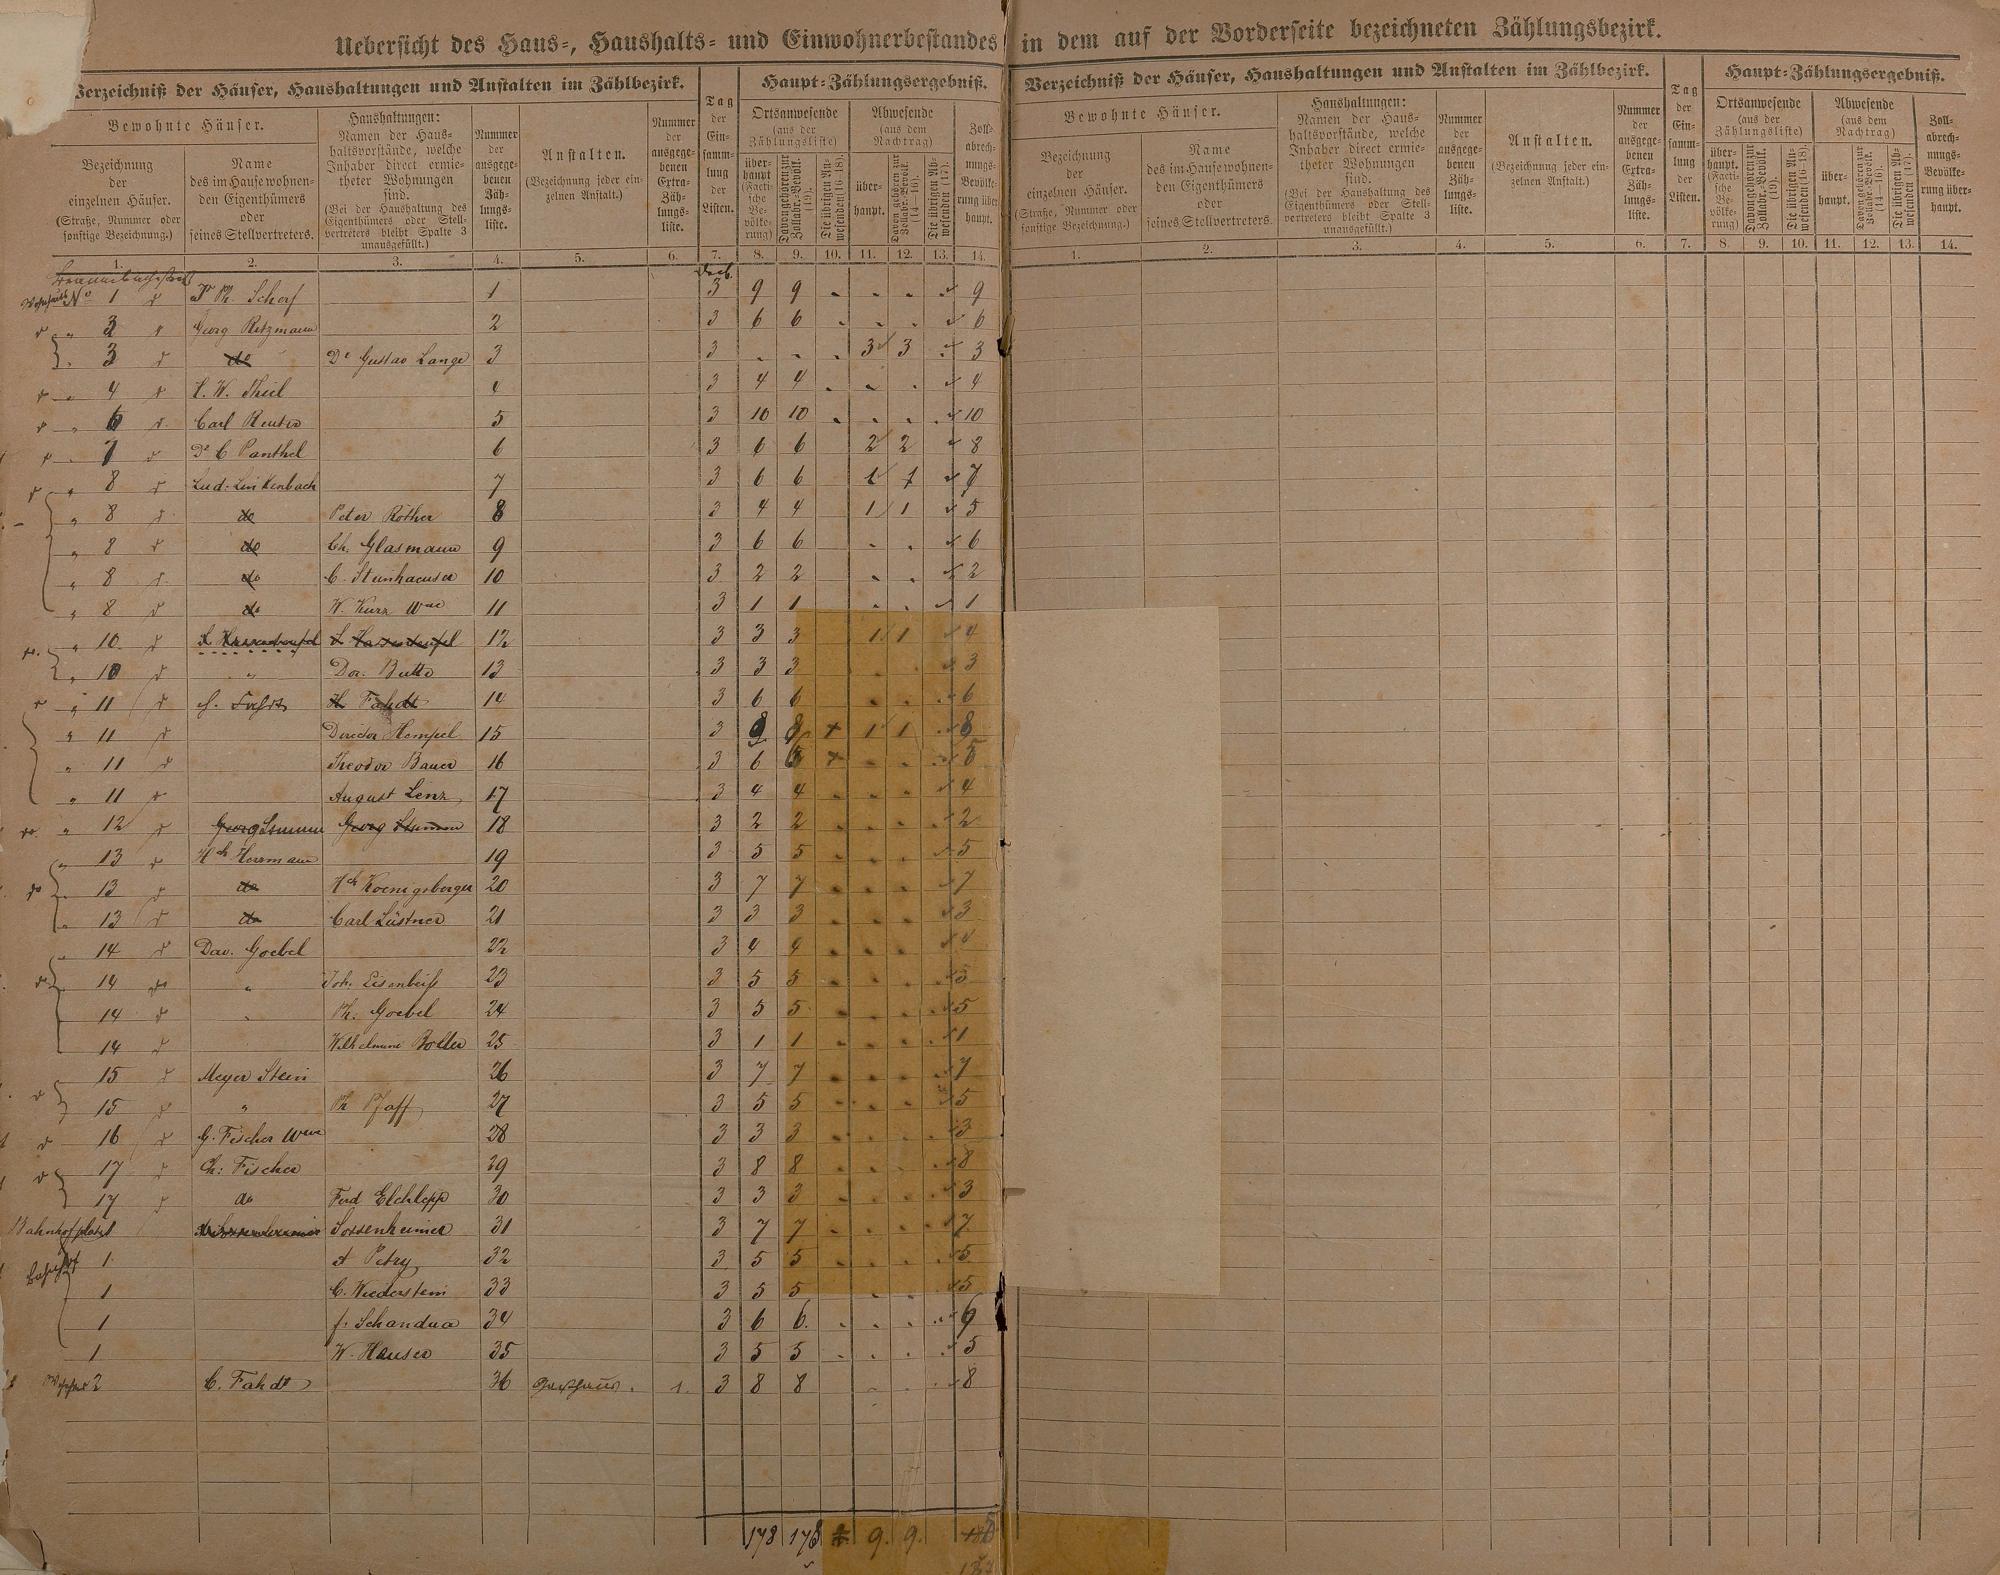 Uebersicht des Haus-, Haushalts- und Einwohnerbestandes in dem auf der Vorderseite bezeichneten Zählungsbezirk.
Verzeichniß der Häuser, Haushaltungen und Anstalten im Zählbezirk.
Bewohnte Häuser.
Bezeichnung der einzelnen Häuser.
(Straße, Nummer oder sonstige Bezeichnung.)
Name des im Hause wohnenden Eigenthümers oder seines Stellvertreters.
Haushaltungen:
Namen der Haushaltsvorstände, welche Inhaber direct ermietheter Wohnungen sind.
(Bei der Haushaltung des Eigenthümers oder Stellvertreters bleibt Spalte 3 unausgefüllt.)
Nummer der ausgegebenen Zählungsliste.
Anstalten.
(Bezeichnung jeder einzelnen Anstalt.)
Nummer der ausgegebenen Extra-Zählungsliste.
Tag der Einsammlung der Listen.
Haupt-Zählungsergebniß.
Ortsanwesende
(aus der Zählungsliste)
überhaupt (Factische Bevölkerung)
Davon gehören zur Zollabr.-Bevölk. (19).
Die übrigen Anwesenden (16-18).
Abwesende
(aus dem Nachtrag)
überhaupt.
Davon gehören zur Zollabr.-Bevölk. (14-16).
Die übrigen Abwesenden (17).
Zollabrechnungs-Bevölkerung überhaupt.
1. 2. 3. 4. 5. 6. 7. 8. 9. 10. 11. 12. 13. 14.
Decb.
No 1 Ph. Scherf 1 3 9 9 9
3 Georg Ritzmann 2 3 6 6 6
3 do Dr Gustav Lange 3 3 3 3 3
4 H. W. Theil 4 3 4 4 4
6 Carl Reuter 5 3 10 10 10
7 Dr C Panthel 6 3 6 6 2 2 8
8 Lud. Linkenbach 7 3 6 6 1 1 7
8 do Peter Rother 8 3 4 4 1 1 5
8 do Ch. Glasmann 9 3 6 6 6
8 do C. Steinhaeuser 10 3 2 2 2
8 do W. Kurz Wwe 11 3 1 1 1
10 12 3 3 3 1 1 4
10 " Dor. Butto 13 3 3 3 3
11 H. Fahdt 14 3 6 6 6
11 Director Hempel 15 3 8 8 1 1 8
11 Theodor Bauer 16 3 6 6
11 August Lenz 17 3 4 4 4
12 Georg Stumm Georg Stumm 18 3 2 2 2
13 Hch Herrmann 19 3 5 5 5
13 do Hch Koenigsberger 20 3 7 7 7
13 do Carl Lüstner 21 3 3 3 3
14 Dav. Goebel 22 3 4 4 4
14 " Joh. Eisenbeiß 23 3 5 5 5
14 " Ph. Goebel 24 3 5 5 5
14 Wilhelmine Boller 25 3 1 1 1
15 Meyer Stein 26 3 7 7 7
15 " Ph Pfaff 27 3 5 5 5
16 G. Fischer Wwe 28 3 3 3 3
17 Ch: Fischer 29 3 8 8 8
17 do Ferd Elchlepp 30 3 3 3 3
Bahnhofplatz 1 Sossenheimer 31 3 7 7 7
1 Petry 32 3 5 5 5
1 C. Wiederstein 33 3 5 5 5
1 f. Schandua 34 3 6 6
1 W. Hauser 35 3 5 5 5
2 C. Fahdt 36 Gasthaus. 1. 3 8 8 8
178 178 9. 9.
Verzeichniß der Häuser, Haushaltungen und Anstalten im Zählbezirk.
Bewohnte Häuser.
Bezeichnung der einzelnen Häuser.
(Straße, Nummer oder sonstige Bezeichnung.)
Name des im Hause wohnenden Eigenthümers oder seines Stellvertreters.
Haushaltungen:
Namen der Haushaltsvorstände, welche Inhaber direct ermietheter Wohnungen sind.
(Bei der Haushaltung des Eigenthümers oder Stellvertreters bleibt Spalte 3 unausgefüllt.)
Nummer der ausgegebenen Zählungsliste.
Anstalten.
(Bezeichnung jeder einzelnen Anstalt.)
Nummer der ausgegebenen Extra-Zählungsliste.
Tag der Einsammlung der Listen.
Haupt-Zählungsergebniß.
Ortsanwesende
(aus der Zählungsliste)
überhaupt. (Factische Bevölkerung)
Davon gehören zur Zollabr.-Bevölk. (19).
Die übrigen Anwesenden (16-18).
Abwesende
(aus dem Nachtrag)
überhaupt.
Davon gehören zur Zollabr.-Bevölk. (14-16).
Die übrigen Abwesenden (17).
Zollabrechnungs-Bevölkerung überhaupt.
1. 2. 3. 4. 5. 6. 7. 8. 9. 10. 11. 12. 13. 14.